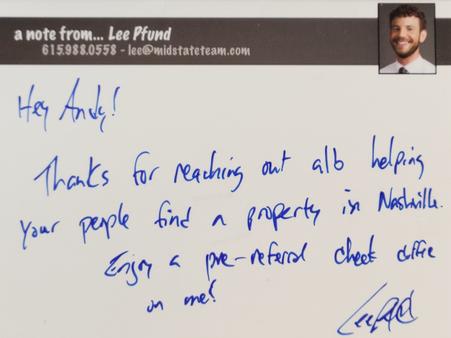 a note from... Lee Pfund
615.988.0558 - lee@midstateteam.com
Hey Andy!
Thanks for reaching out a/b helping
your people find a property in Nashville.
Enjoy a pre-referral check coffee
on me!